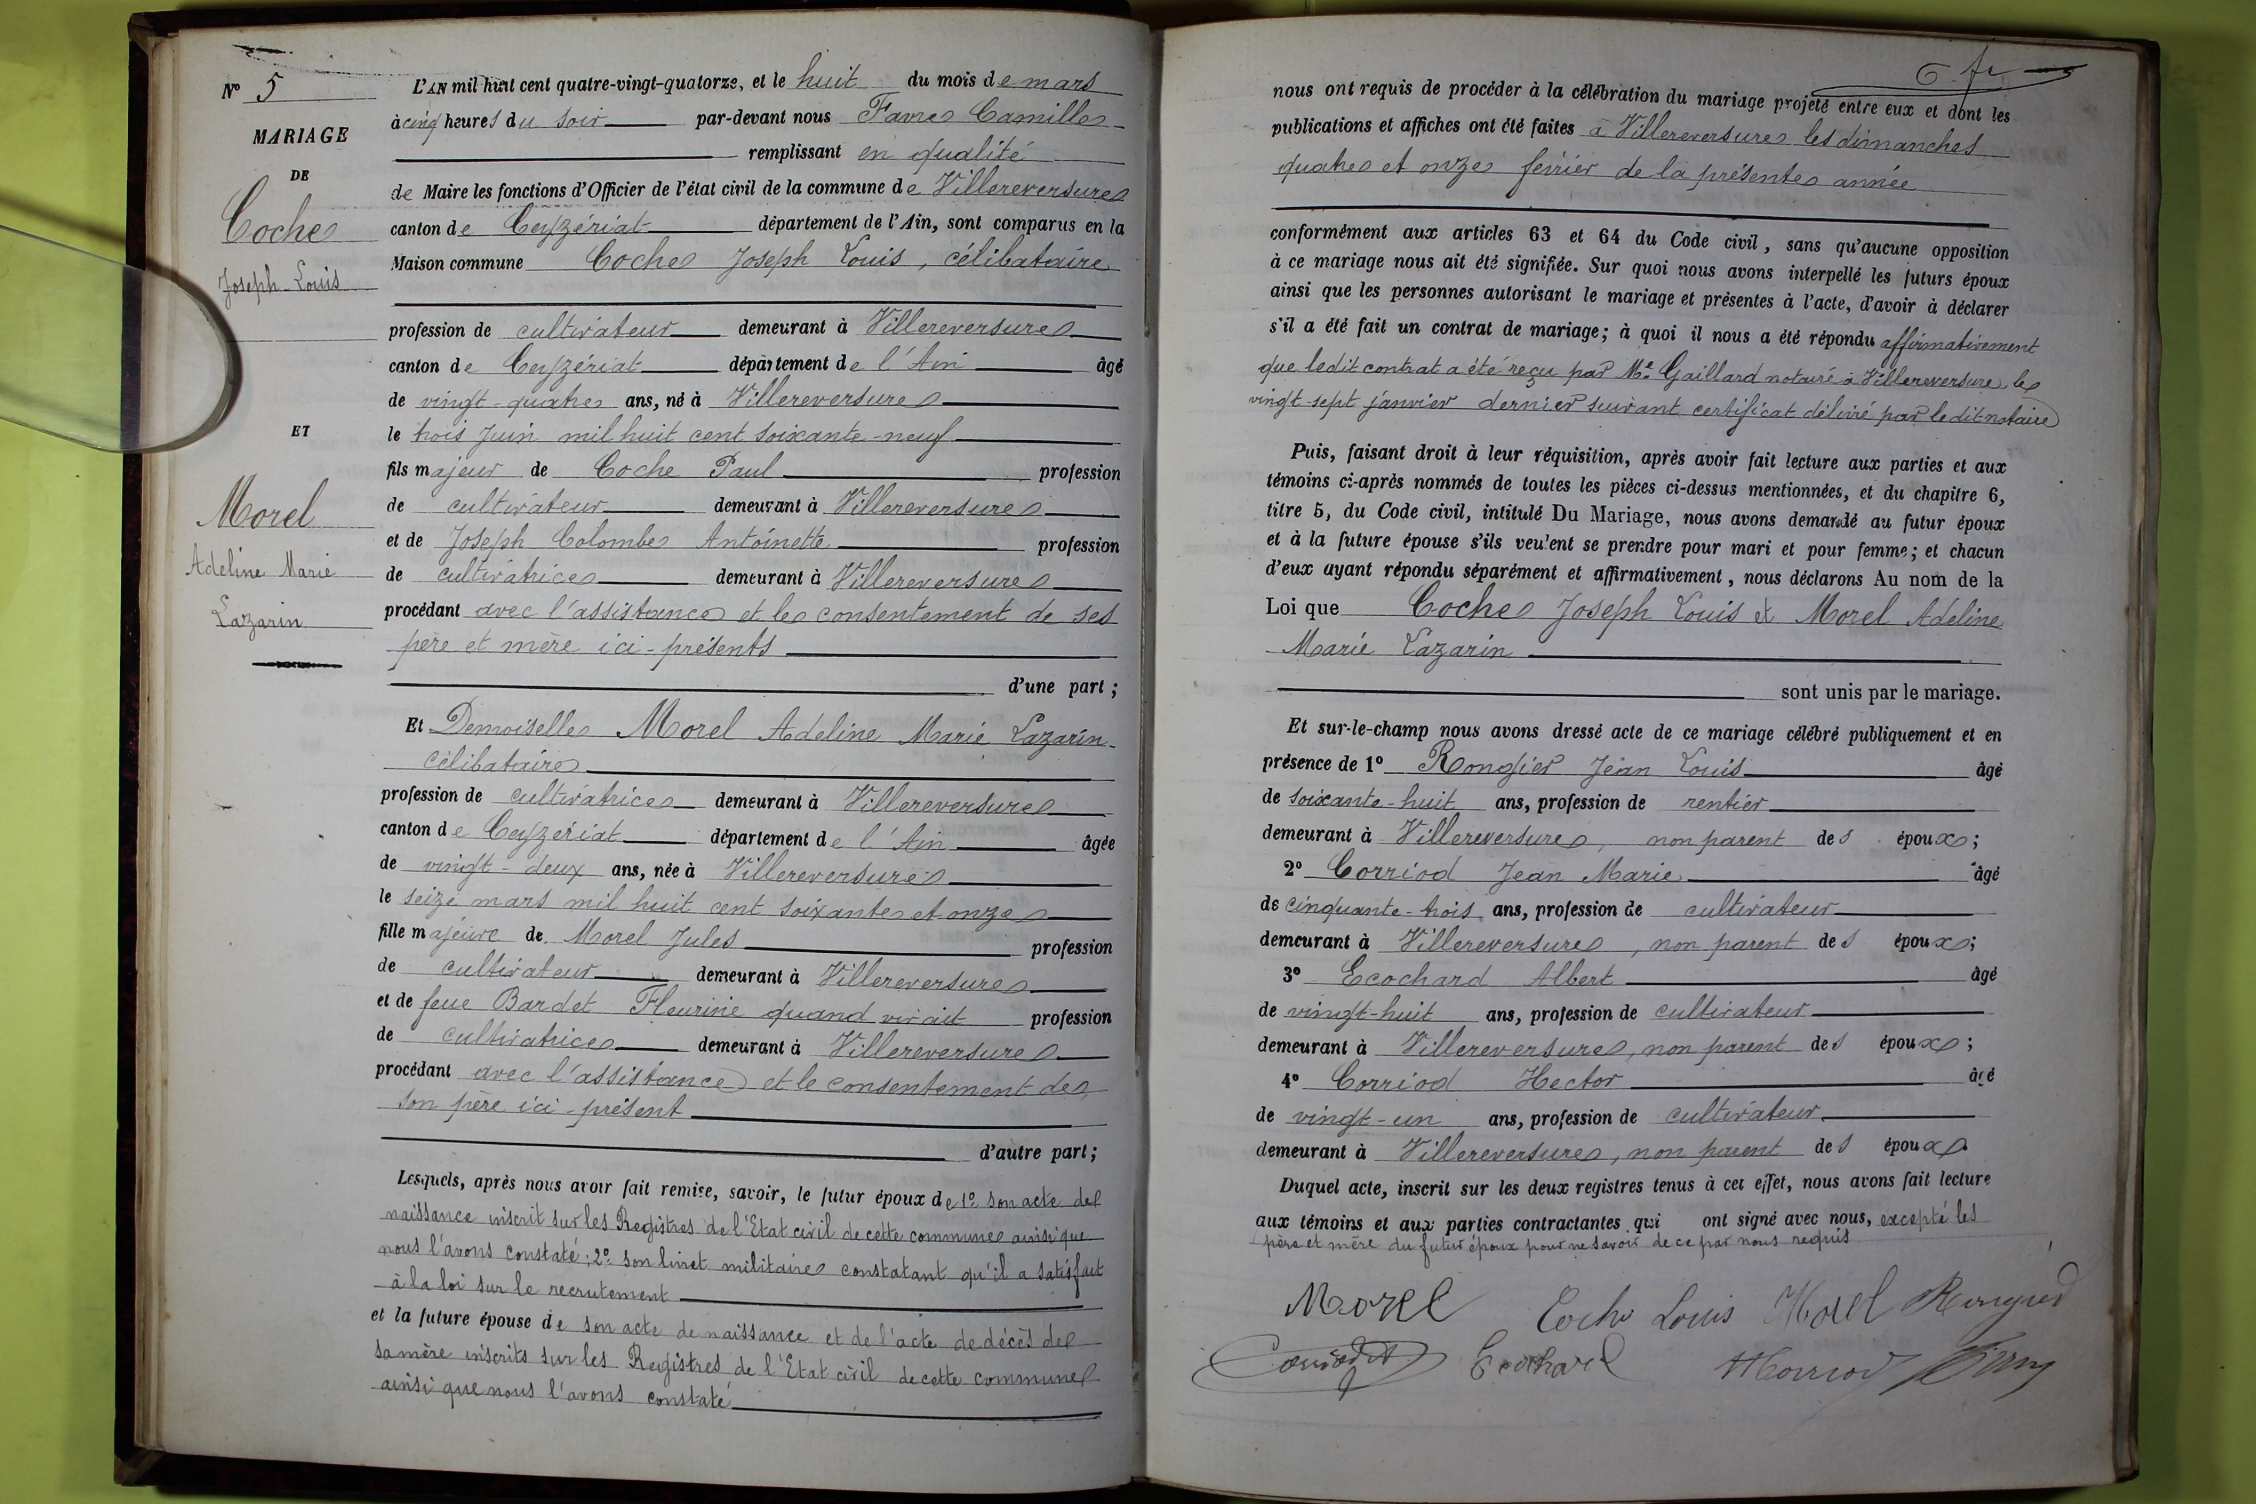 N° 5
MARIAGE
DE
Coche
Joseph-Louis
ET
Morel
Adeline Marie
Lazarin
L'AN mil huit cent quatre-vingt-quatorze, et le huit du mois de mars
à cinq heures du soir par-devant nous Camille
remplissant en qualité
de Maire les fonctions d'Officier de l'état civil de la commune de Villereversure
canton de Ceyzériat département de l'Ain, sont comparus en la
Maison commune Coche Joseph Louis, célibataire
profession de cultivateur demeurant à Villereversure
canton de Ceyzériat département de l'Ain âgé
de vingt-quatre ans, né à Villereversure
le trois Juin mil huit cent soixante-neuf
fils majeur de Coche Paul profession
de cultivateur demeurant à Villereversure
et de Joseph Colombe Antoinette profession
de cultivatrice demeurant à Villereversure
procédant avec l'assistance et le consentement de ses
père et mère ici-présents
d'une part;
Et Demoiselle Morel Adeline Marie Lazarin
célibataire
profession de cultivatrice demeurant à Villereversure
canton de Ceyzériat département de l'Ain âgée
de vingt-deux ans, née à Villereversure
le seize mars mil huit cent soixante et onze
fille majeure de Morel Jules profession
de cultivateur demeurant à Villereversure
et de feue Bardet Fleurine quand vivait profession
de cultivatrice demeurant à Villereversure
procédant avec l'assistance et le consentement de
son père ici-présent
d'autre part;
Lesquels, après nous avoir fait remise, savoir, le futur époux de 1° son acte de
naissance inscrit sur les Registres de l'Etat civil de cette commune ainsi que
nous l'avons constaté; 2° son livret militaire constatant qu'il a satisfait
à la loi sur le recrutement
et la future épouse de son acte de naissance et de l'acte de décès de
sa mère inscrits sur les Registres de l'Etat civil de cette commune
ainsi que nous l'avons constaté
nous ont requis de procéder à la célébration du mariage projeté entre eux et dont les
publications et affiches ont été faites à Villereversure les dimanches
quatre et onze février de la présente année
conformément aux articles 63 et 64 du Code civil, sans qu'aucune opposition
à ce mariage nous ait été signifiée. Sur quoi nous avons interpellé les futurs époux
ainsi que les personnes autorisant le mariage et présentes à l'acte, d'avoir à déclarer
s'il a été fait un contrat de mariage; à quoi il nous a été répondu affirmativement
que ledit contrat a été reçu par Me Gaillard notaire à Villereversure le
vingt-sept janvier dernier suivant certificat délivré par le dit notaire
Puis, faisant droit à leur réquisition, après avoir fait lecture aux parties et aux
témoins ci-après nommés de toutes les pièces ci-dessus mentionnées, et du chapitre 6,
titre 5, du Code civil, intitulé Du Mariage, nous avons demandé au futur époux
et à la future épouse s'ils veulent se prendre pour mari et pour femme; et chacun
d'eux ayant répondu séparément et affirmativement, nous déclarons Au nom de la
Loi que Coche Joseph Louis et Morel Adeline
Marie Lazarin
sont unis par le mariage.
Et sur-le-champ nous avons dressé acte de ce mariage célébré publiquement et en
présence de 1° Rongier Jean Louis âgé
de soixante-huit ans, profession de rentier
demeurant à Villereversure, non parent des époux;
2° Corriod Jean Marie âgé
de cinquante-trois ans, profession de cultivateur
demeurant à Villereversure, non parent des époux;
3° Ecochard Albert âgé
de vingt-huit ans, profession de cultivateur
demeurant à Villereversure, non parent des époux;
4° Corriod Hector âgé
de vingt-un ans, profession de cultivateur
demeurant à Villereversure, non parent des époux
Duquel acte, inscrit sur les deux registres tenus à cet effet, nous avons fait lecture
aux témoins et aux parties contractantes qui ont signé avec nous, excepté les
père et mère du futur époux pour ne savoir de ce par nous requis
Morel Coche Louis Morel
Ecochard